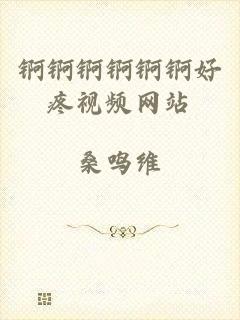 锕锕锕锕锕锕好
疼视频网站
桑鸣维